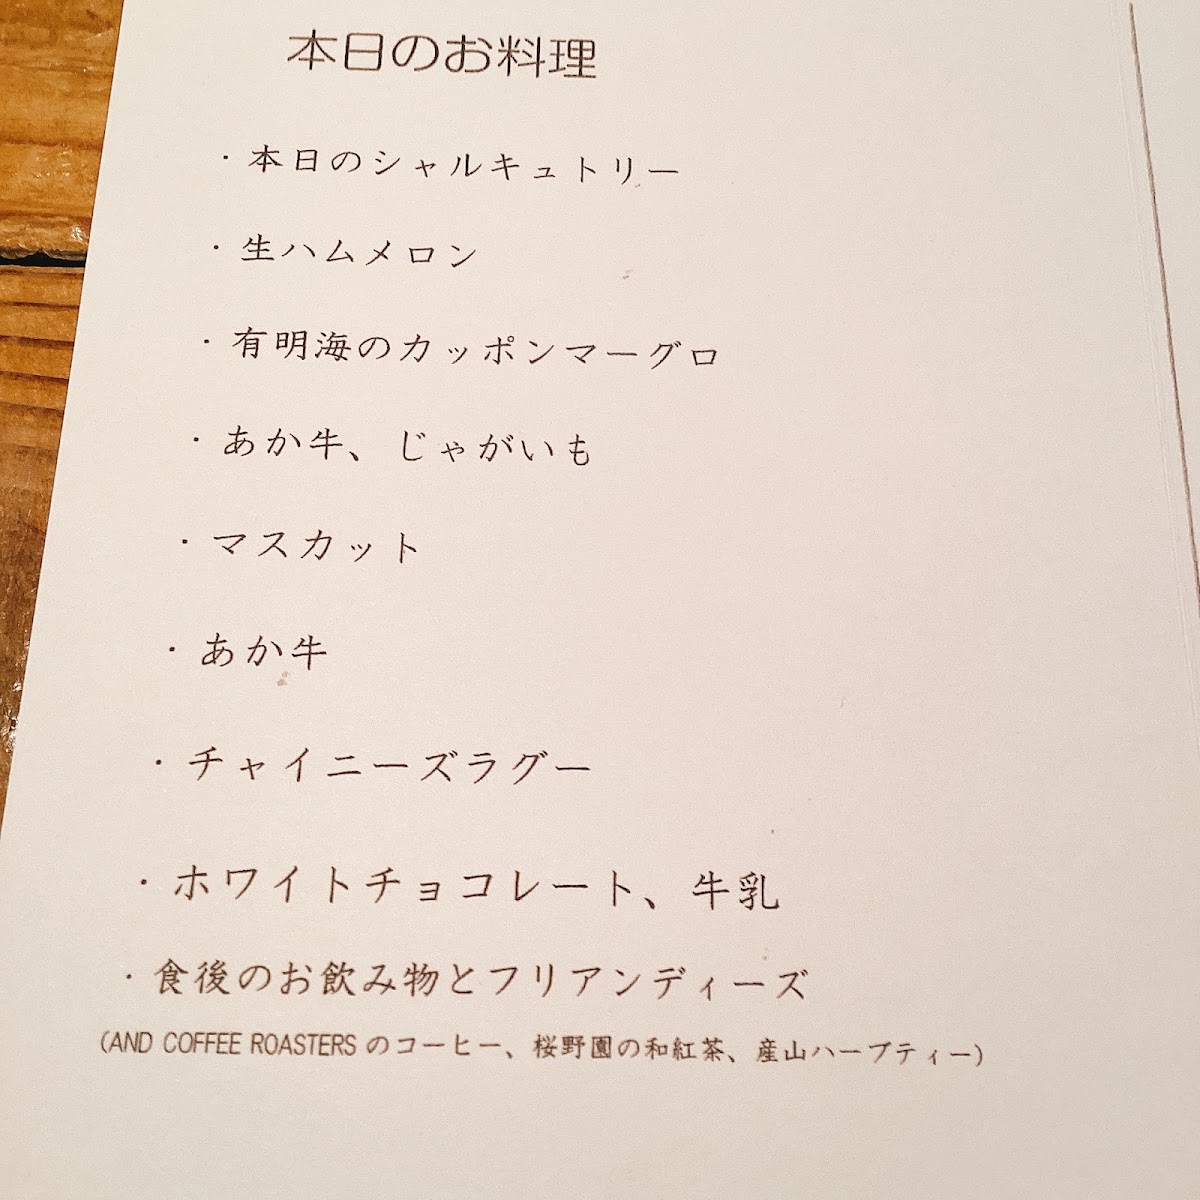 本日のお料理
・本日のシャルキュトリー
・生ハムメロン
・有明海のカッポンマーグロ
・あか牛、じゃがいも
・マスカット
・あか牛
・チャイニーズラグー
・ホワイトチョコレート、牛乳
・食後のお飲み物とフリアンディーズ
(AND COFFEE ROASTERS のコーヒー、桜野園の和紅茶、産山ハーブティー)